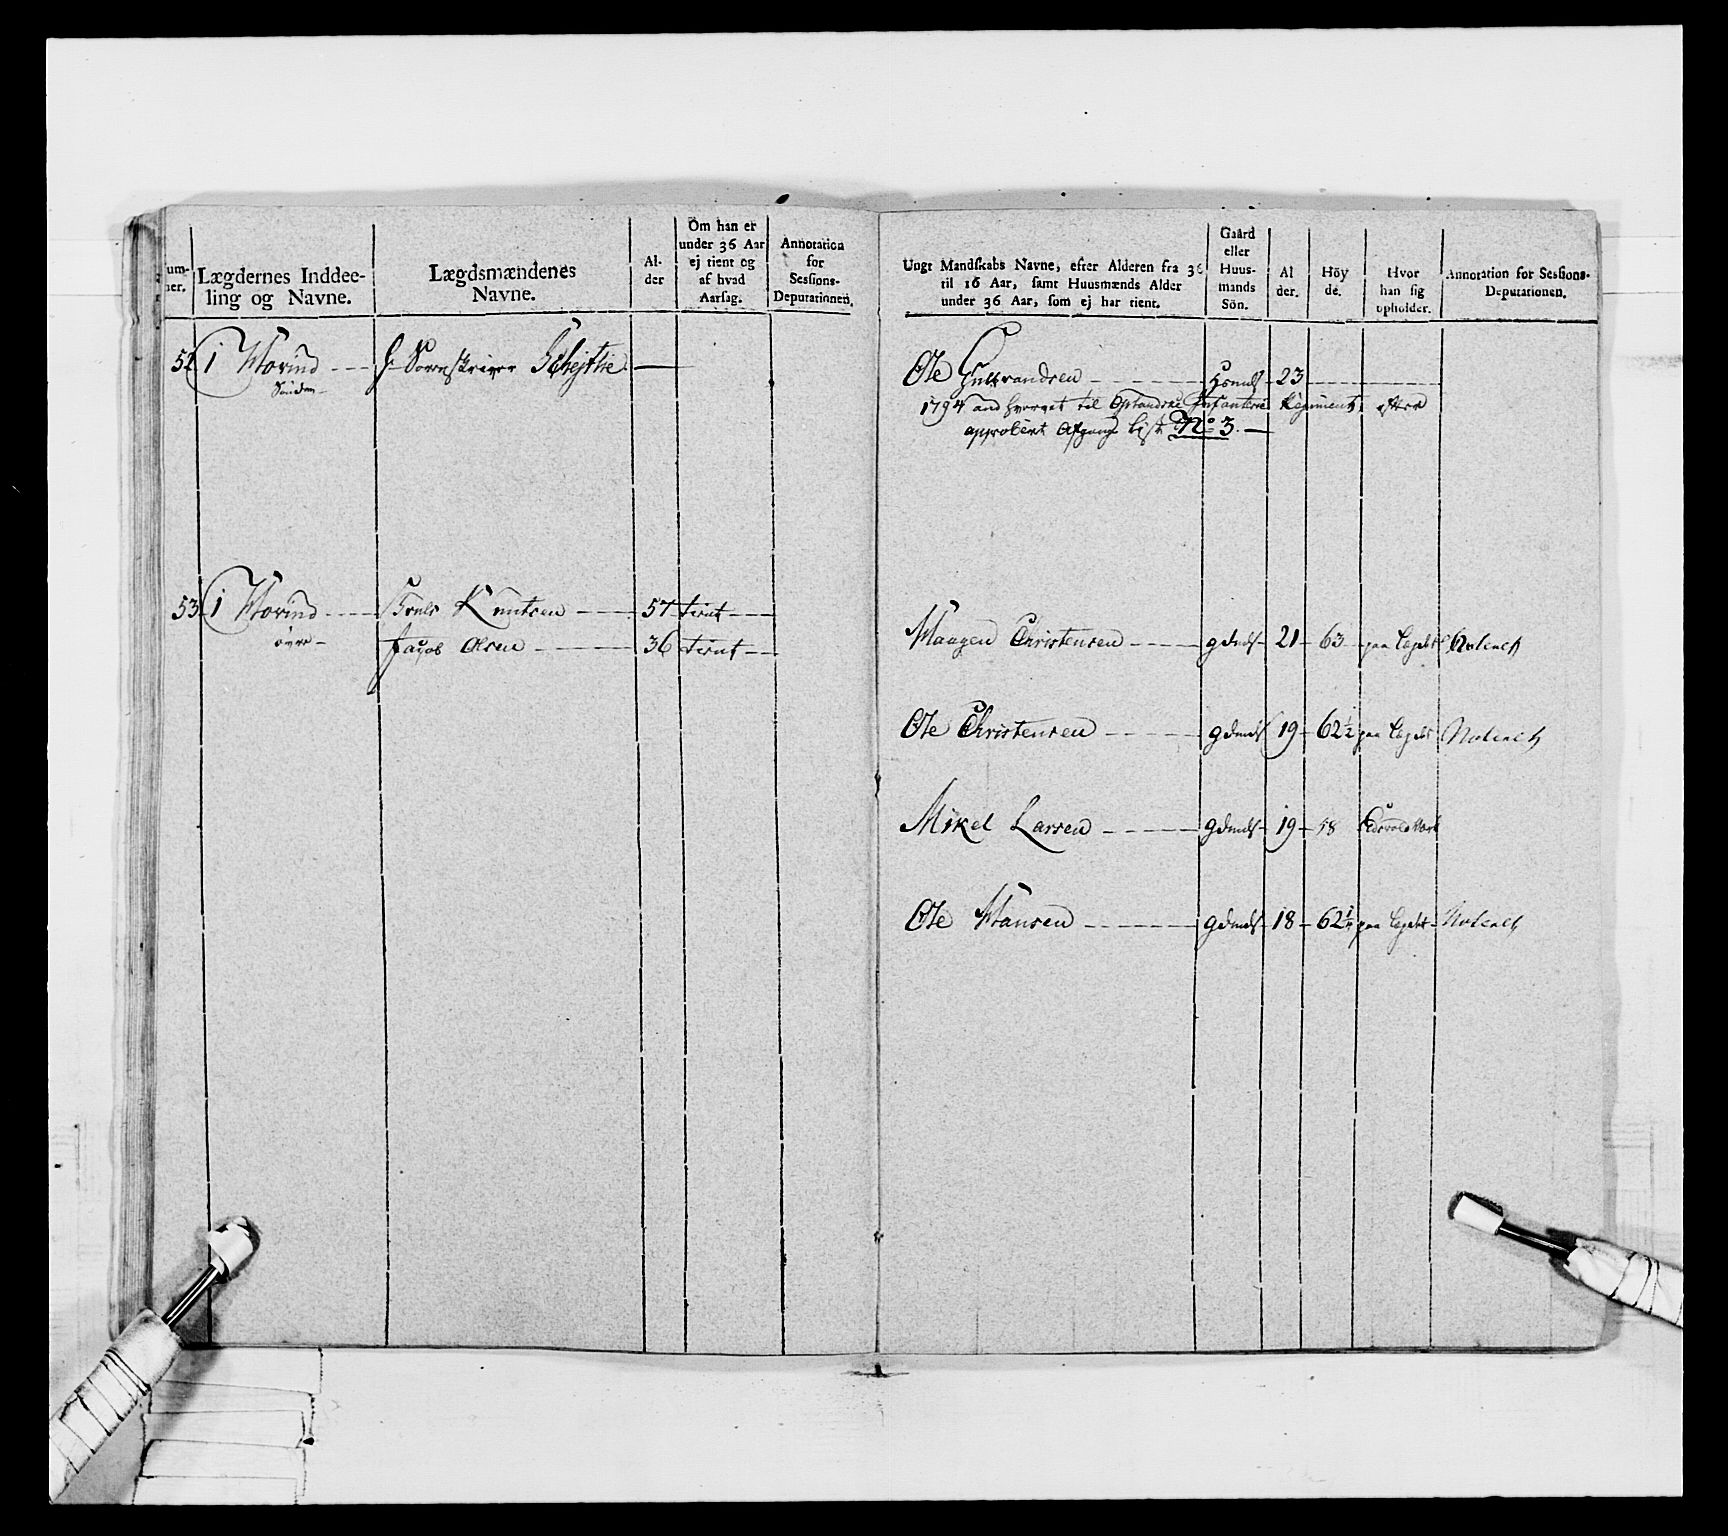 um-
er.
Lægdernes Inddee-
ling og Navne.
Lægdsmændenes
Navne.
Al-
der
Om han er
under 36 Aar
ej tient og
af hvad
Aarsag.
Annotation
for
Sessions-
Deputationen.
52 1 Horind
Sönden
Sorenskriver
53 1 Horind
övre
Truls Knutsen 57 tient
Jacob Olsen 36 tient
Ungt Mandskabs Navne, efter Alderen fra 36
til 16 Aar, samt Huusmænds Alder
under 36 Aar, som ej har tient.
Gaard
eller
Huus-
mands
Sön.
Al
der.
Höy
de.
Hvor
han sig
opholder.
Annotation for Sessions-
Deputationen.
Ole Gulbrandsen Hsmds 23
1794 til Oplandske Infanterie Regiment efter
approbert Afgangs List No 3.
Haagen Christensen gdmds 21 63 paa Lægdet Noteret
Ole Christensen gdmds 19 62½ paa Lægdet Noteret
Mikel Larsen gdmds 19 58 Edsvold Værk
Ole Hansen gdmds 18 62½ paa Lægdet Noteret